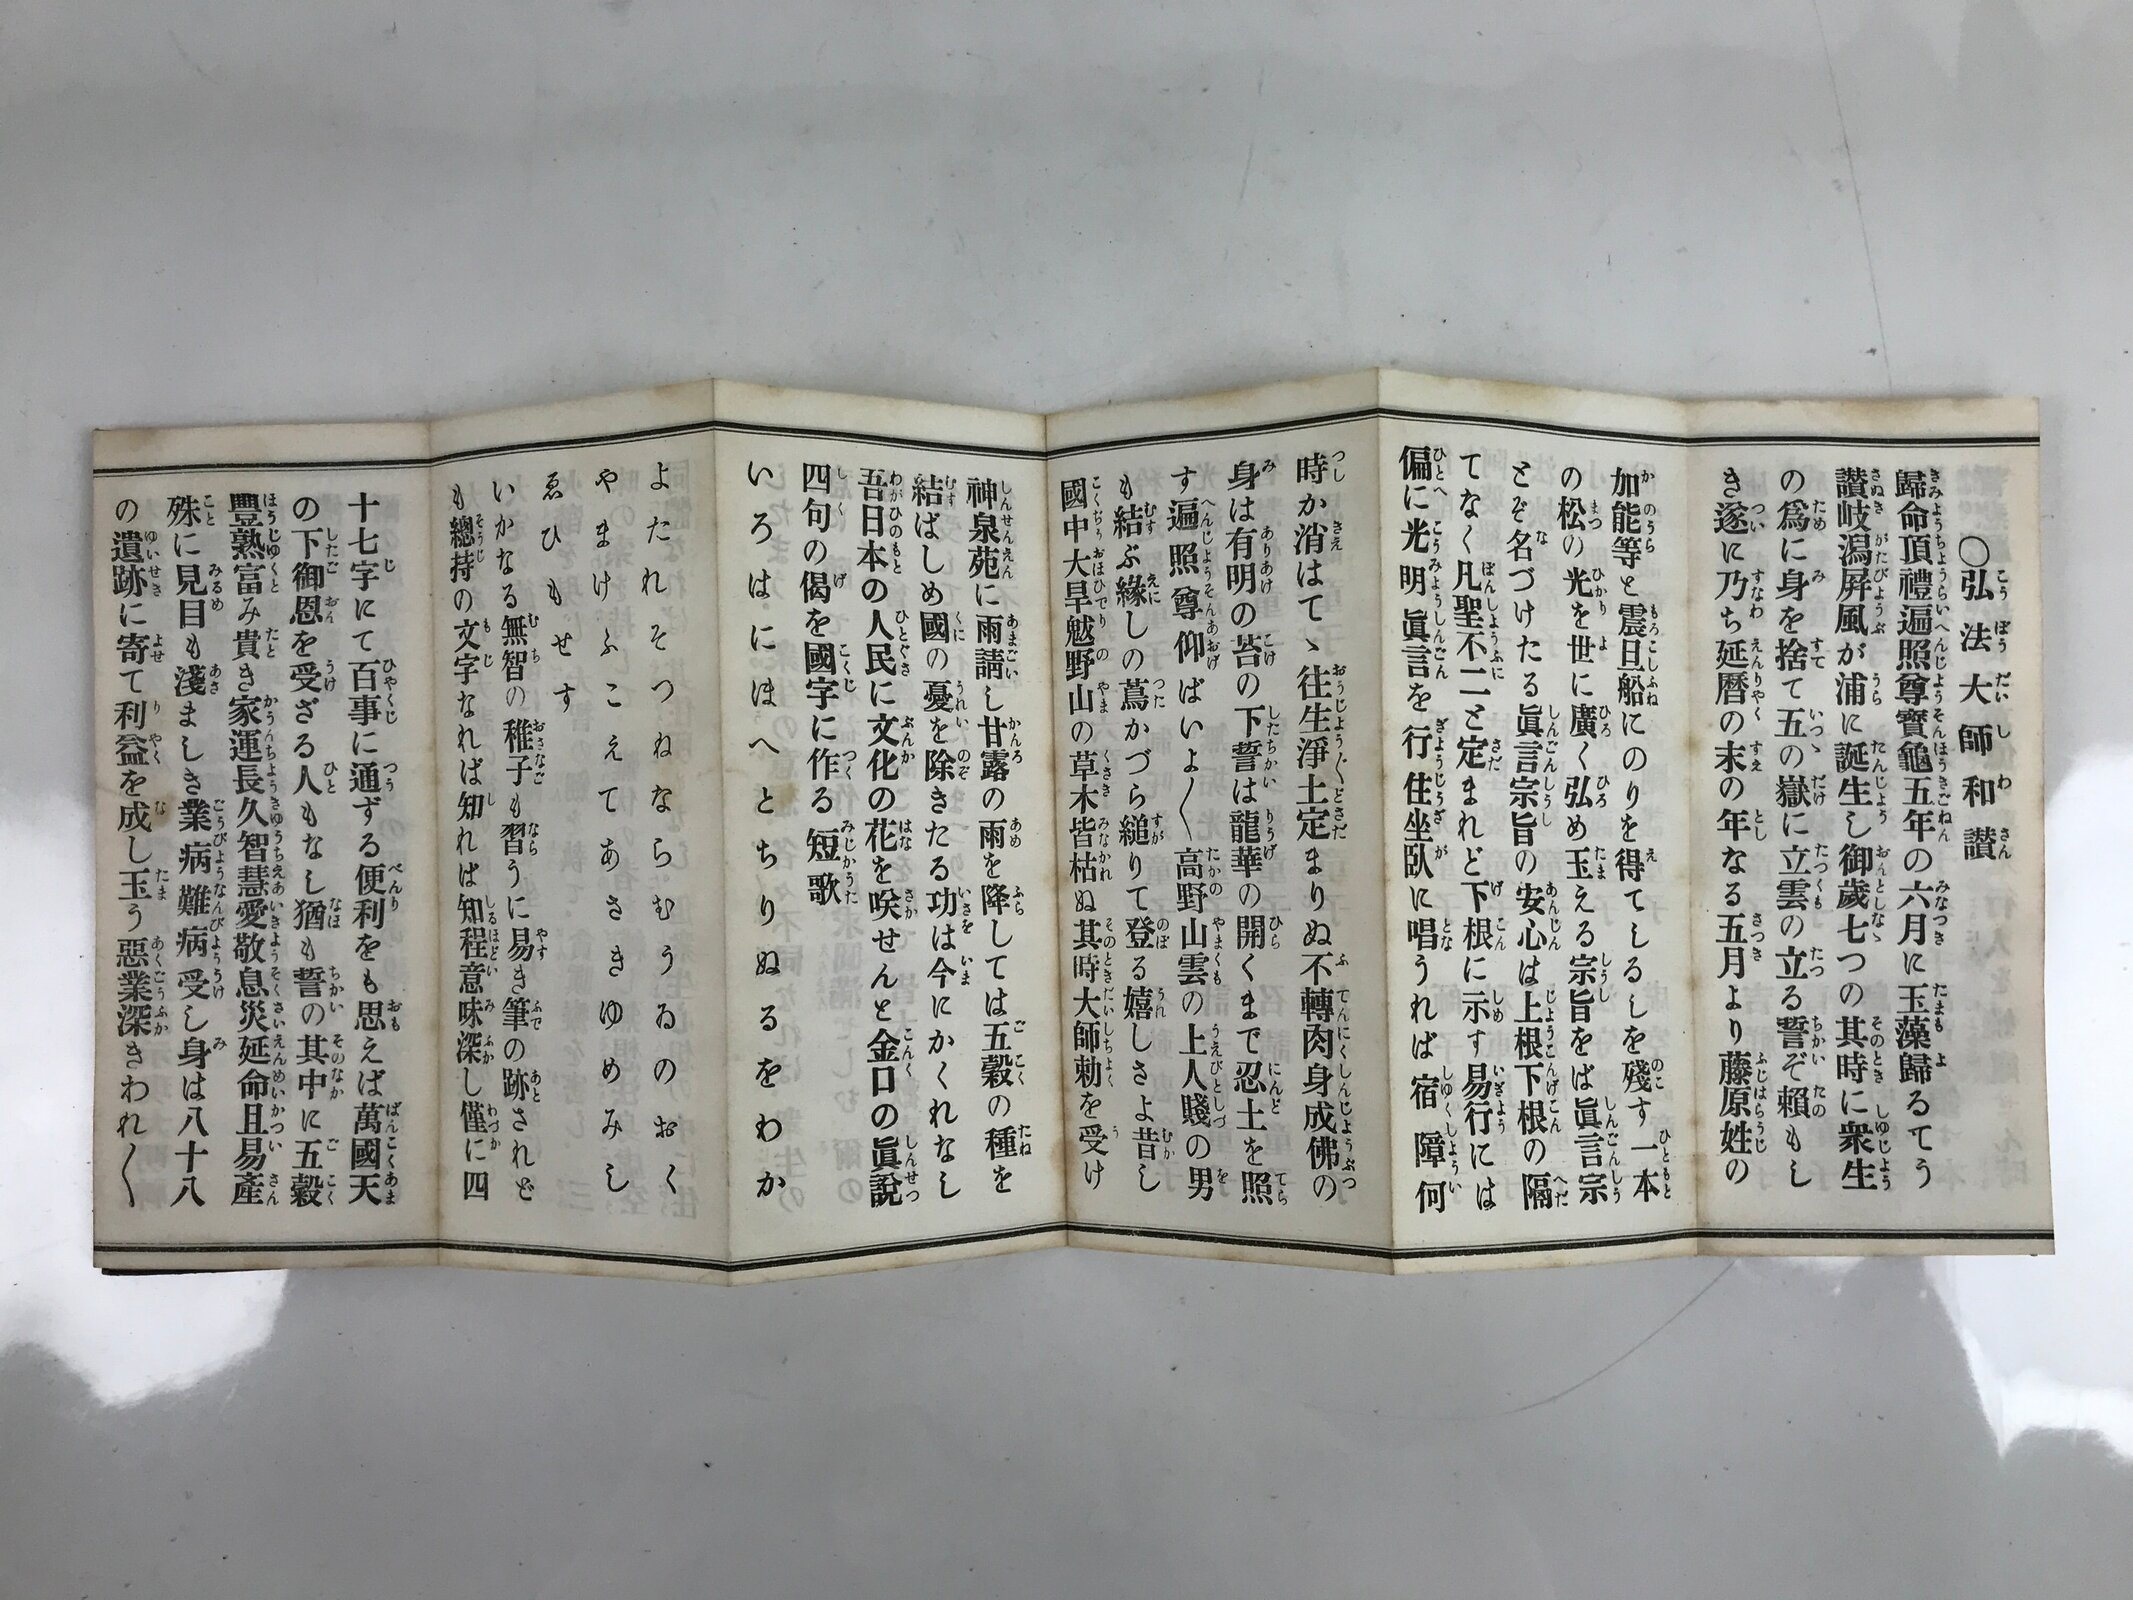 〇弘法大師和讃
歸命頂禮遍照尊寶龜五年の六月に玉藻歸るてう
讃岐潟屏風が浦に誕生し御歲七つの其時に衆生
の爲に身を捨て五の嶽に立雲の立る誓ぞ賴もし
き遂に乃ち延曆の末の年なる五月より藤原姓の
加能等と震旦船にのりを得てしるしを殘す一本
の松の光を世に廣く弘め玉える宗旨をば眞言宗
とぞ名づけたる眞言宗旨の安心は上根下根の隔
てなく凡聖不二と定まれど下根に示す易行には
偏に光明眞言を行住坐臥に唱うれば宿障何
時か消はてゝ往生淨土定まりぬ不轉肉身成佛の
身は有明の苔の下誓は龍華の開くまで忍土を照
す遍照尊仰ばいよ〱高野山雲の上人賤の男
も結ぶ緣しの蔦かづら縋りて登る嬉しさよ昔し
國中大旱魃野山の草木皆枯ぬ其時大師勅を受け
神泉苑に雨請し甘露の雨を降しては五穀の種を
結ばしめ國の憂を除きたる功は今にかくれなし
吾日本の人民に文化の花を咲せんと金口の眞說
四句の偈を國字に作る短歌
いろはにほへとちりぬるをわか
よたれそつねならむうゐのおく
やまけふこえてあさきゆめみし
ゑひもせす
いかなる無智の稚子も習うに易き筆の跡されど
も總持の文字なれば知れば知程意味深し僅に四
十七字にて百事に通ずる便利をも思えば萬國天
の下御恩を受ざる人もなし猶も誓の其中に五穀
豐熟富み貴き家運長久智慧愛敬息災延命且易產
殊に見目も淺ましき業病難病受し身は八十八
の遺跡に寄て利益を成し玉う惡業深きわれ〱